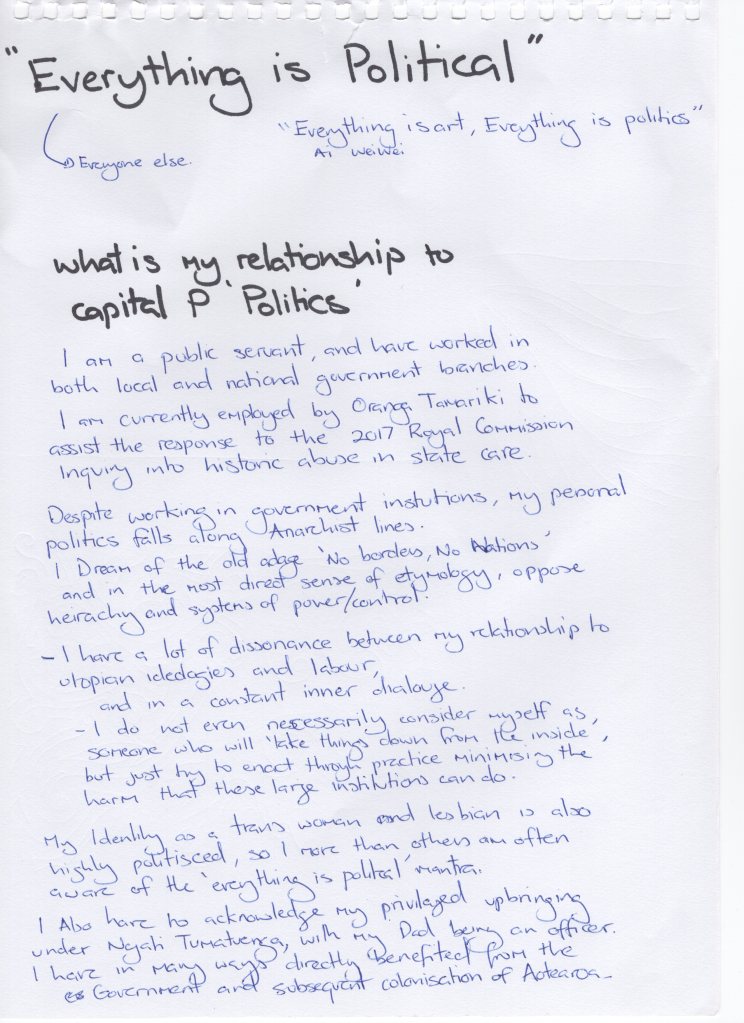 "Everything is Political"
"Everything is art, Eveything is politics"
Ai WeiWei
Everyone else.
what is my relationship to
capital P 'Politics'
I am a public servant, and have worked in
both local and national government branches.
I am currently employed by Oranga Tamariki to
assist the response to the 2017 Royal Commission
Inquiry into historic abuse in state care.
Despite working in government instutions, my personal
politics falls along Anarchist lines.
I Dream of the old adage 'No borders, No Nations'
and in the most direct sense of etymology, oppose
heirachy and systems of power/control.
- I have a lot of dissonance between my relationship to
utopian idedogies and labour,
and in a constant inner dialouge.
- I do not even necessarily consider myself as,
someone who will 'take things down from the inside',
but just try to enact through practice minimising the
harm that these large institutions can do.
My Identity as a trans woman and lesbian is also
highly politisced, so I more than others am often
aware of the 'everything is polital' mantra.
I Also have to acknowledge my privilaged upbringing
under Ngati Tumatuenga, with my Dad being an officer.
I have in many ways directly benefited from the
Government and subsequent colonisation of Aotearoa-